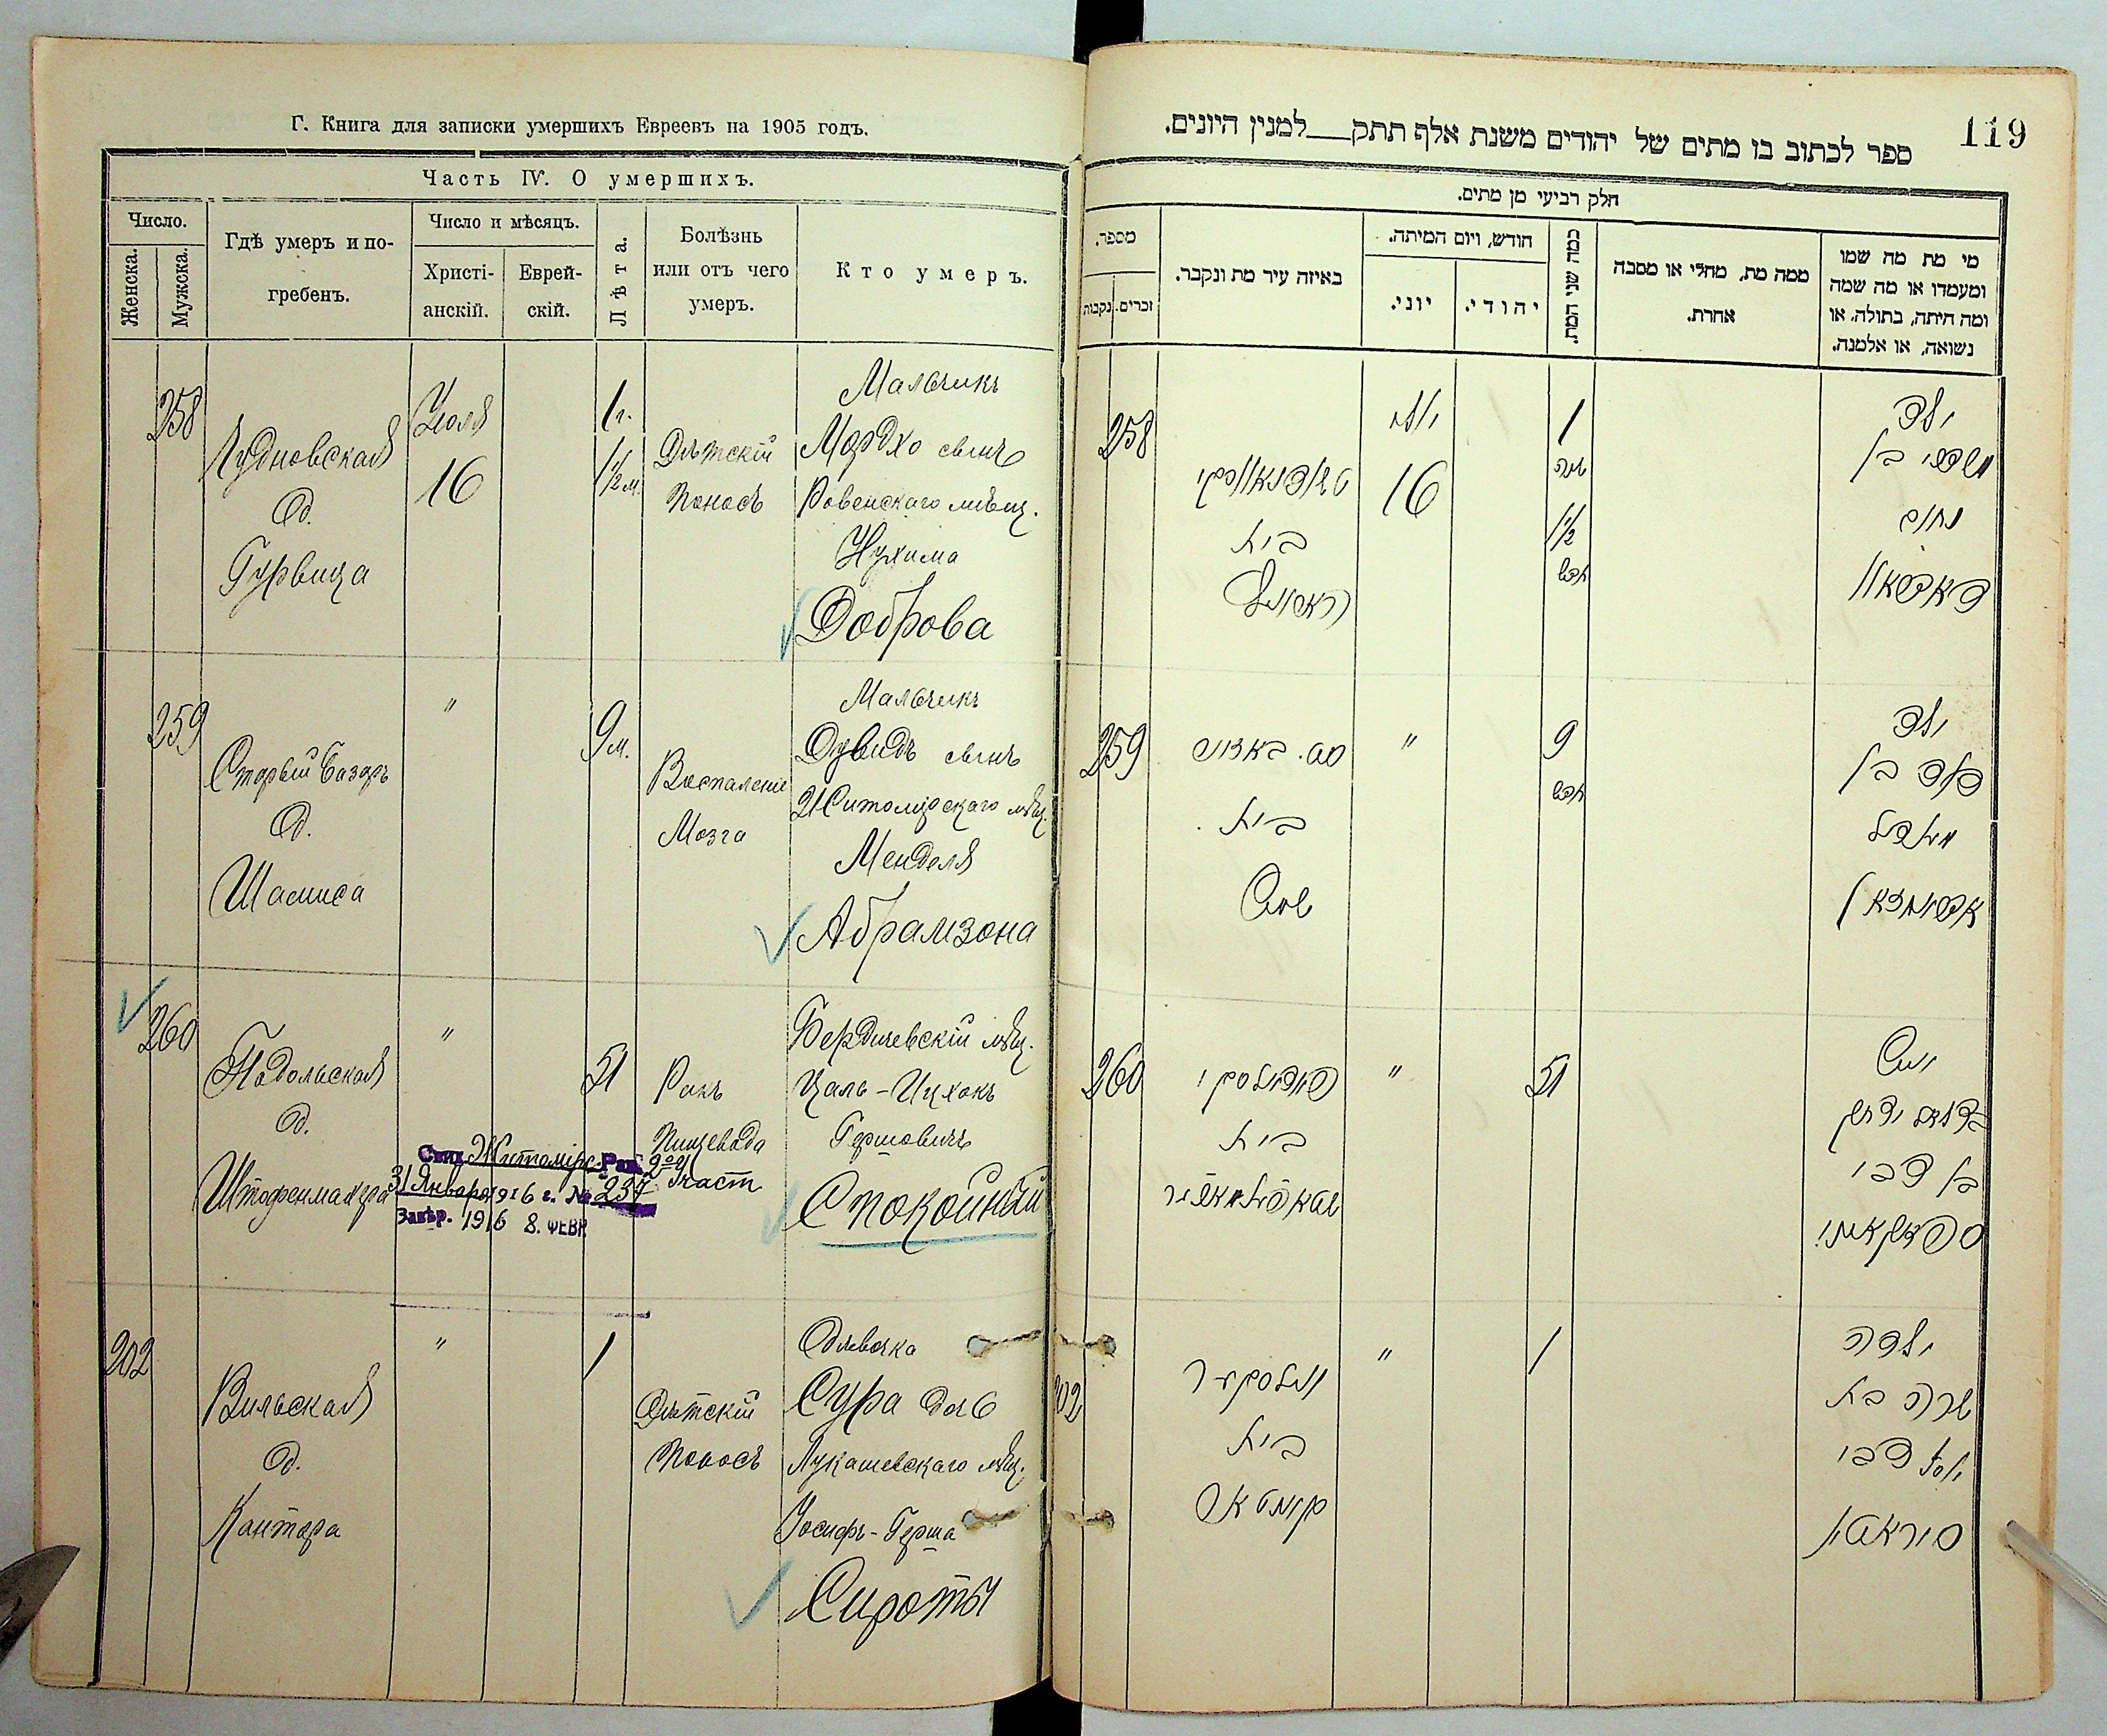 Г. Книга для записки умершихъ Евреевъ на 1905 годъ.
Часть IV. О умершихъ.
Число.
Женска.
Мужска.
Гдѣ умеръ и по-
гребенъ.
Число и мѣсяцъ.
Христі-
анскій.
Еврей-
скій.
Лѣта.
Болѣзнь
или отъ чего
умеръ.
Кто умеръ.
258
Чудновская
д.
Гурвица
Іюля
16
1 г.
1/2 м.
Дѣтскій
Поносъ
Мальчикъ
Мордко сынъ
Ровенскаго мѣщ.
Нухима
Доброва
259
Старый Базаръ
д.
Шамиса
"
9 м.
Воспаленіе
Мозга
Мальчикъ
Давидъ сынъ
Житомірскаго мѣщ.
Менделя
Абрамзона
260
Подольская
д.
Штофенмахера
"
51
Ракъ
Пищевода
Бердичевскій мѣщ.
Цаль-Ицхокъ
Гершовичъ
Спокойный
Житомірс. Рав. 2ой
31 Января 1916 г. № 237 Участ
Завѣр. 1916 8. ФЕВР
202
Вильская
д.
Кантора
"
1
Дѣтскій
Поносъ
Дѣвочка
Сура дочь
Лукашевскаго мѣщ.
Іосифъ-Герша
Сироты
119
ספר לכתוב בו מתים של יהודים משנת אלף תתק למנין היונים.
חלק רביעי מן מתים.
מספר.
זכרים.
נקבות
באיזה עיר מת ונקבר.
חודש, ויום המיתה.
יוני.
יהודי.
כמה שני המת.
ממה מת, מחלי או מסבה
אחרת.
מי מת מה שמו
ומעמדו או מה שמה
ומה היתה, בתולה, או
נשואה, או אלמנה.
258
טשודנאווסקי
בית
יולי
16
1
שנה
1/2
חדש
ילד
מרדכי בן
נחום
דאבראוו
259
סט. באזור
בית
שמש
"
9
חדש
ילד
דוד בן
מענדל
אבראמזאן
260
פודולסקי
בית
"
51
איש
בצלאל יצחק
בן צבי
ספאקאיני
202
ווילסקער
בית
קאנטאר
"
1
ילדה
שרה בת
יוסף צבי
סיראטע